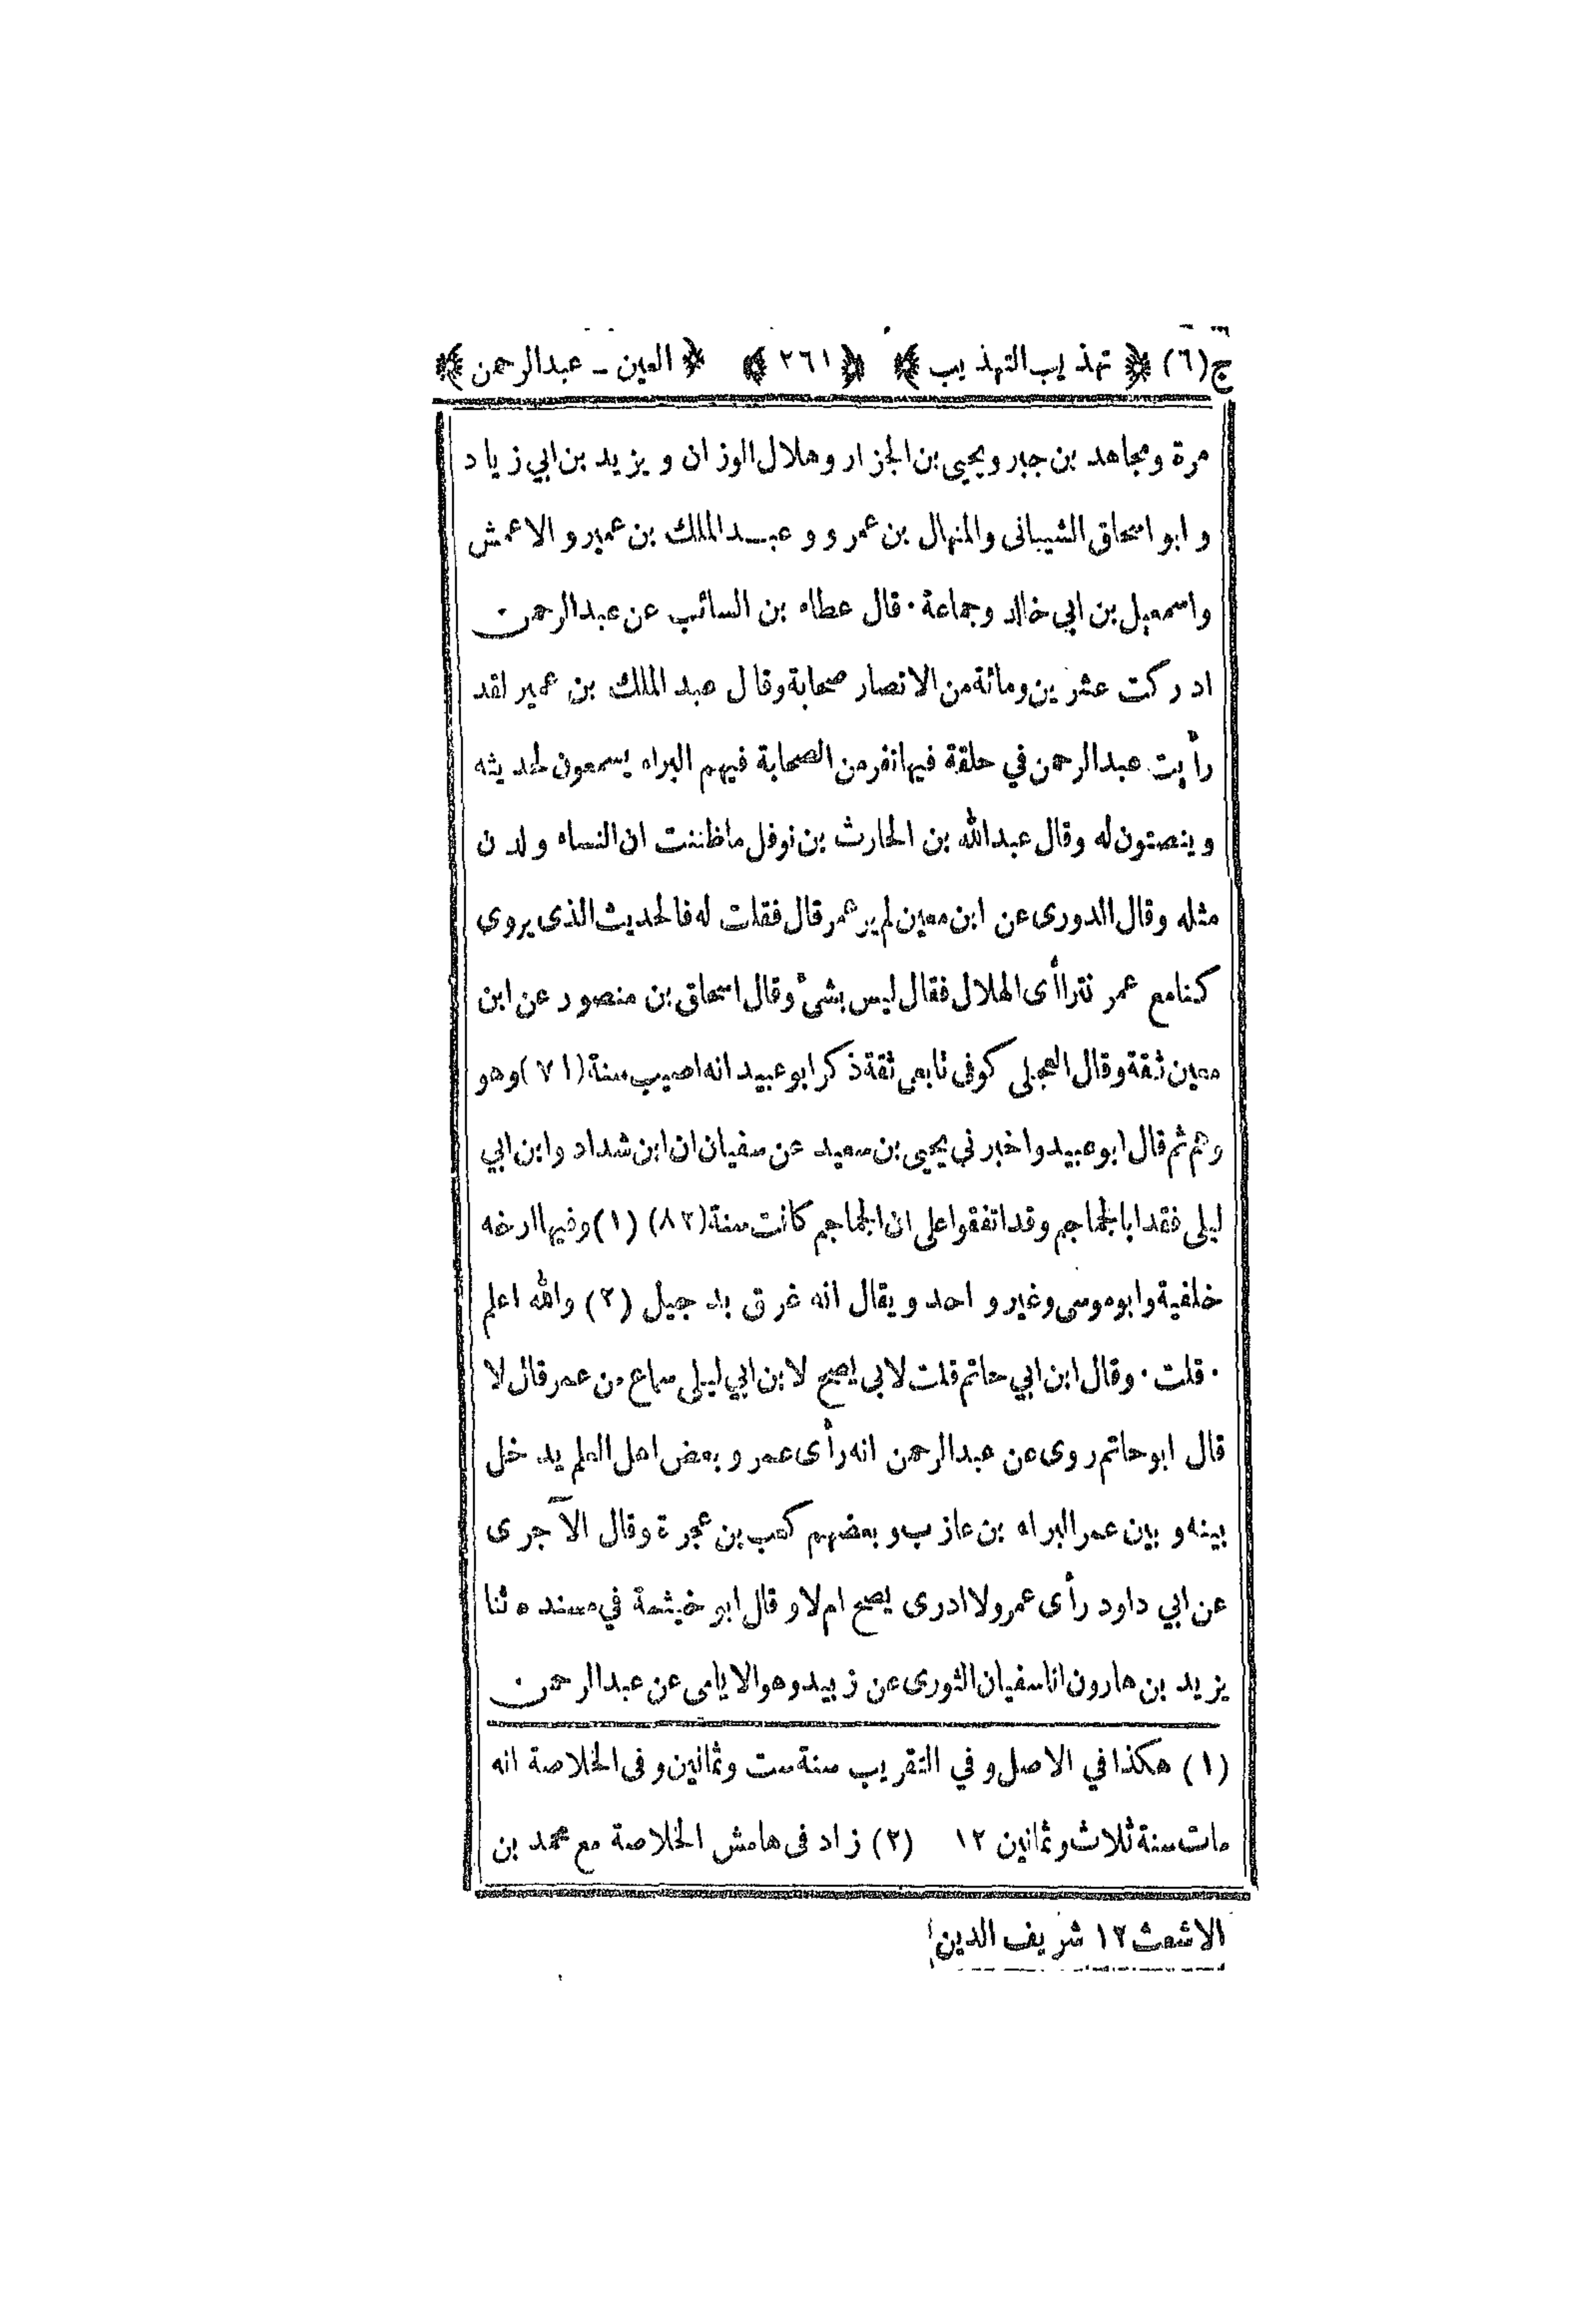 ج(٦) ﴿ تهذيب التهذيب ﴾ ﴿ ٢٦١ ﴾ ﴿ العين - عبدالرحمن ﴾
مرة ومجاهد بن جبر ويحيى بن الجزار وهلال الوزان ويزيد بن ابي زياد
وابو اسحاق الشيباني والمنهال بن عمرو وعبد الملك بن عمير والاعمش
واسمعيل بن ابي خالد وجماعة · قال عطاء بن السائب عن عبدالرحمن
ادركت عشرين ومائة من الانصار صحابة وقال عبد الملك بن عمير لقد
رأيت عبدالرحمن في حلقة فيها نفر من الصحابة فيهم البراء يسمعون لحديثه
وينصتون له وقال عبدالله بن الحارث بن نوفل ماظننت ان النساء ولدن
مثله وقال الدورى عن ابن معين لم ير عمر قال فقلت له فالحديث الذى يروى
كنامع عمر نتراأى الهلال فقال ليس بشئ وقال اسحاق بن منصور عن ابن
معين ثقة وقال العجلى كوفى تابعى ثقة ذكر ابو عبيد انه اصيب سنة (٧١) وهو
وهم ثم قال ابو عبيد واخبرني يحيى بن سعيد عن سفيان ان ابن شداد وابن ابي
ليلى فقدا بالجماجم وقد اتفقوا على ان الجماجم كانت سنة (٨٢) (١) وفيها ارخه
خلفية وابو موسى وغير واحد ويقال انه غرق بدجيل (٢) والله اعلم
· قلت · وقال ابن ابي حاتم قلت لابى يصح لابن ابي ليلى سماع من عمر قال لا
قال ابو حاتم روى عن عبدالرحمن انه رأى عمر وبعض اهل العلم يدخل
بينه وبين عمر البراء بن عازب وبعضهم كعب بن عجرة وقال الآجرى
عن ابي داود رأى عمر ولا ادرى يصح ام لا وقال ابو خيثمة في مسنده ثنا
يزيد بن هارون انا سفيان الثورى عن زبيد وهو الايامى عن عبدالرحمن
(١) هكذا في الاصل وفي التقريب سنة ست وثمانين وفى الخلاصة انه
مات سنة ثلاث وثمانين ١٢ (٢) زاد فى هامش الخلاصة مع محمد بن
الاشعث ١٢ شريف الدين